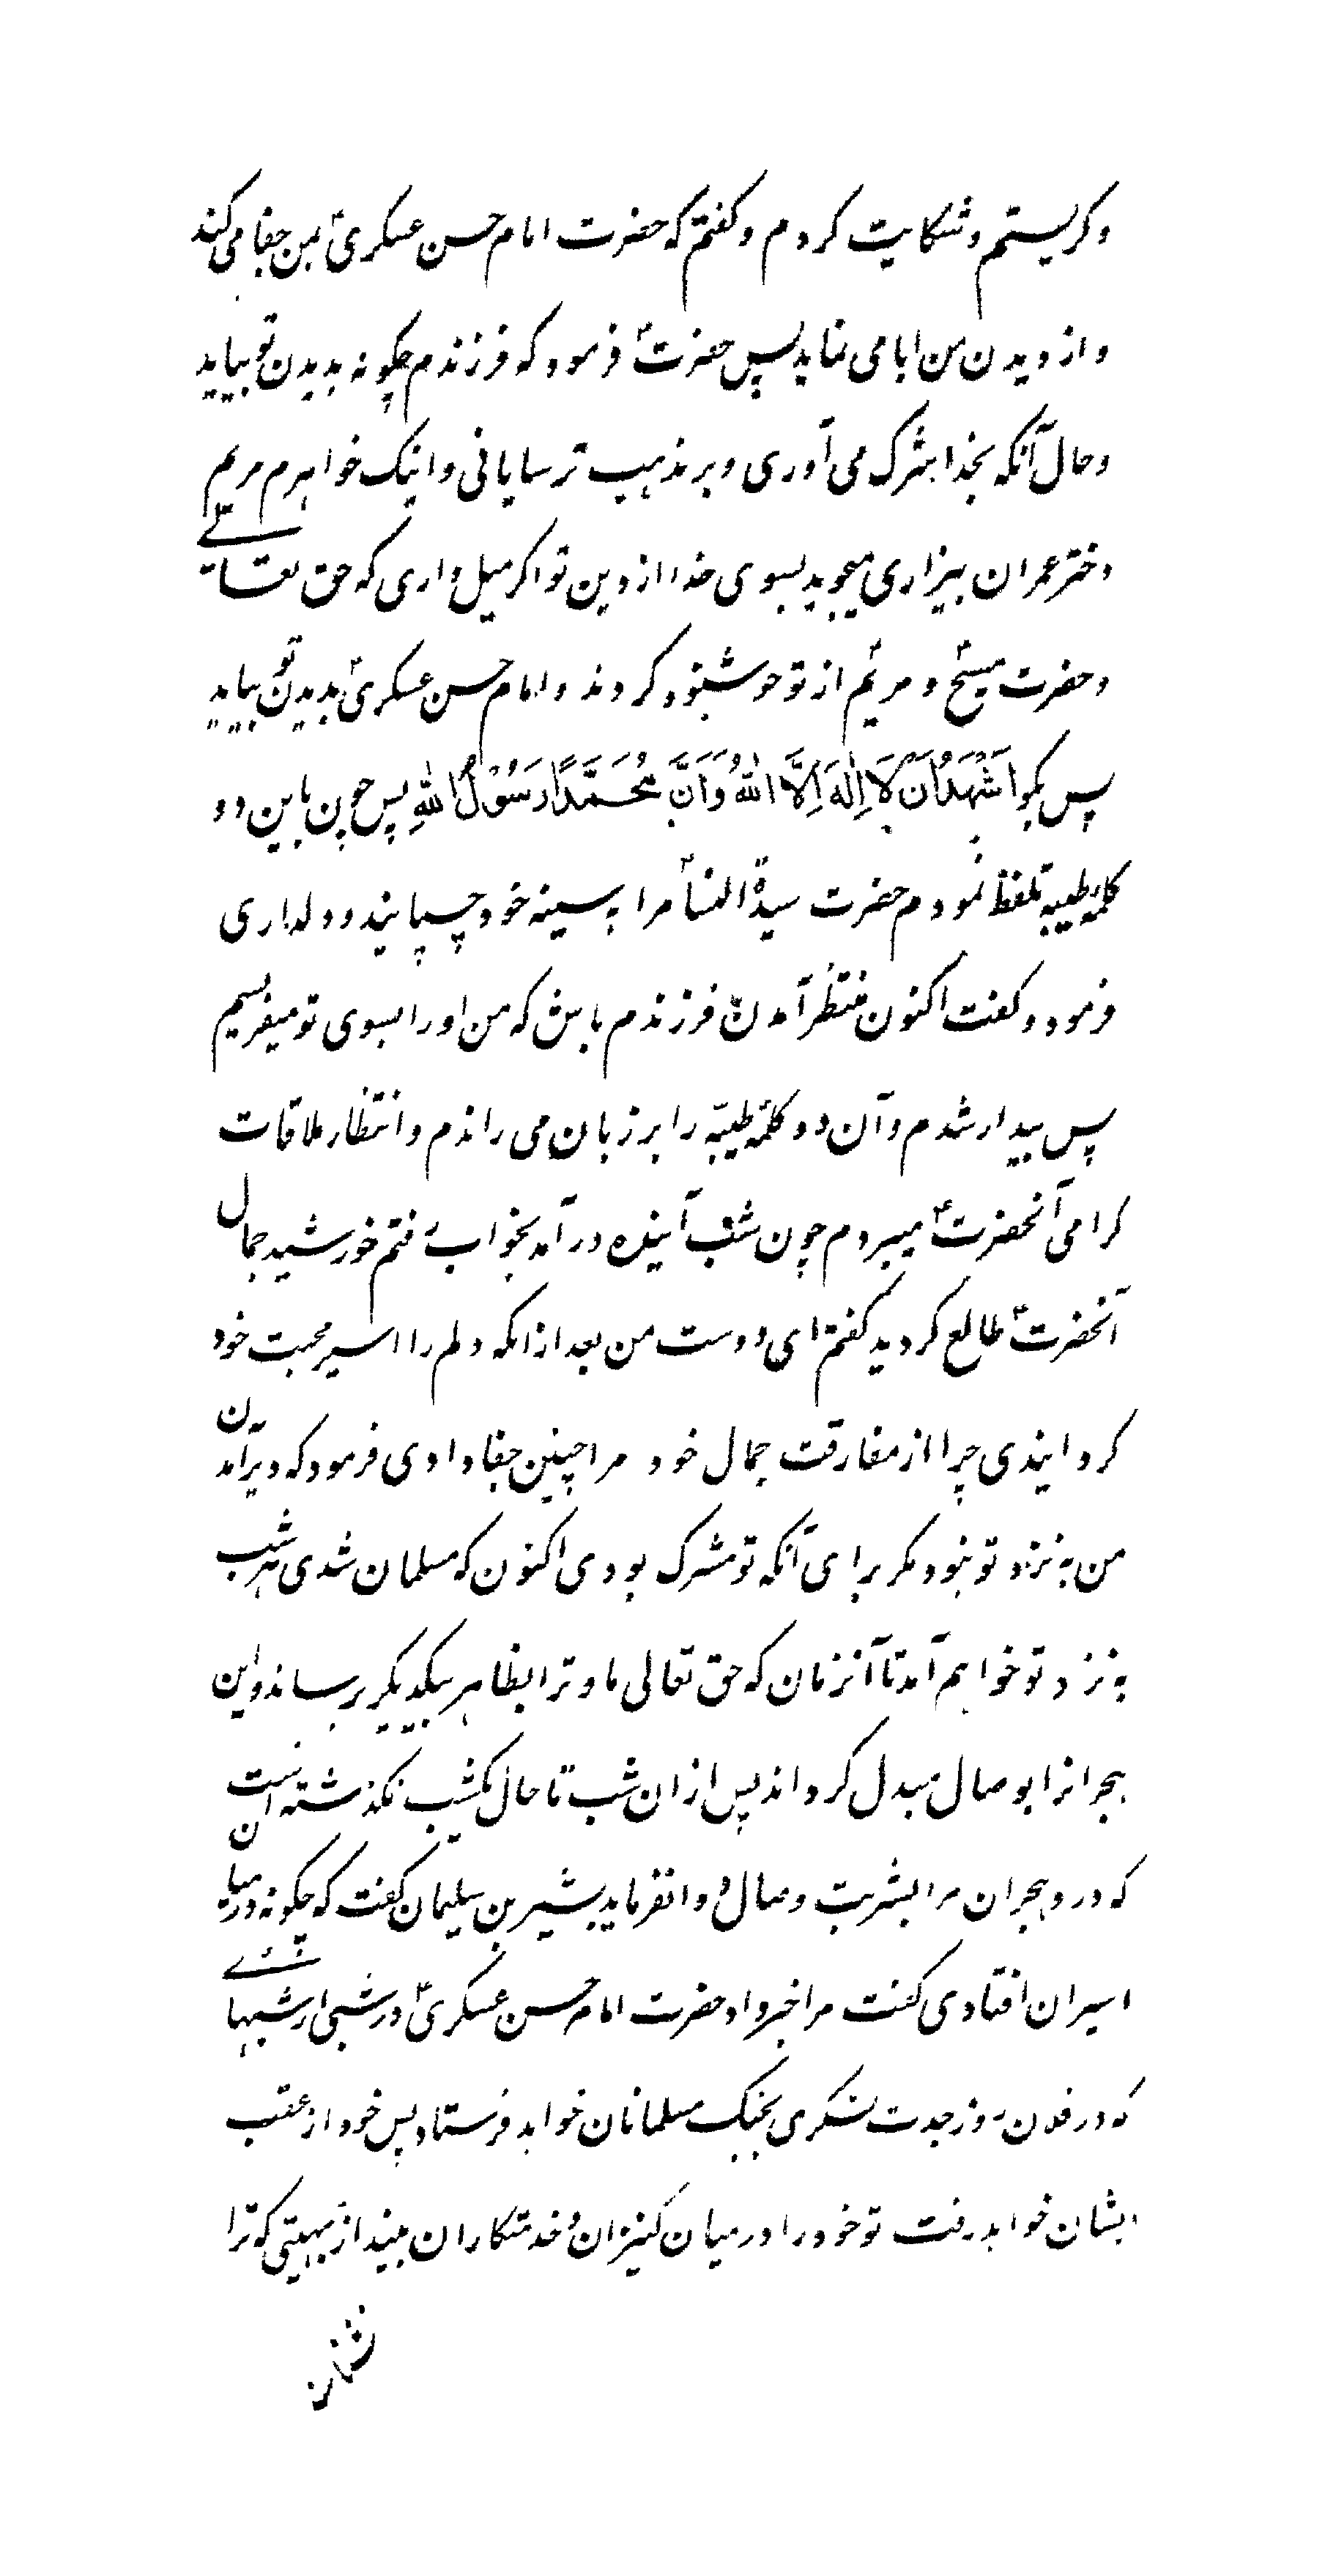 و کریستم و شکایت کردم و کفتم که حضرت امام حسن عسکریؑ بمن جفا می کند
و از دیدن من ابا می نماید پس حضرتؑ فرمود که فرزندم چکونه بدیدن تو بیاید
و حال آنکه بخدا شرک می آوری و بر مذہب ترسایانی و اینک خواہرم مریم
دختر عمران بیزاری میجوید بسوی خدا از دین تو اکر میل داری که حق تعالے
و حضرت مسیحؑ و مریمؑ از تو خوشنود کردند و امام حسن عسکریؑ بدیدن تو بیاید
پس بکو اَشْهَدُ اَنْ لَا اِلٰهَ اِلَّا اللهُ وَ اَنَّ مُحَمَّدًا رَسُوْلُ اللهِ پس چون باین دو
کلمۂ طیبه تلفظ نمودم حضرت سیدة النساؑ مرا به سینه خود چسپانید و دلداری
فرمود و کفت اکنون منتظر آمدن فرزندم باش که من او را بسوی تو میفرستم
پس بیدار شدم و آن دو کلمۂ طیّبه را بر زبان می راندم و انتظار ملاقات
کرامی آنحضرتؑ میبردم چون شب آینده در آمد بخواب رفتم خورشید جمال
آنحضرتؑ طالع کردید کفتم ای دوست من بعد از انکه دلم را اسیر محبت خود
کردانیدی چرا از مفارقت جمال خود مرا چنین جفا دادی فرمود که دیر آمدن
من به نزد تو نبود مکر برای آنکه تو مشرک بودی اکنون که مسلمان شدی هر شب
به نزد تو خواہم آمد تا آنزمان که حق تعالی ما و ترا بظاہر بیکدیکر برساند و این
ہجرانرا بوصال مبدل کرداند پس از ان شب تا حال یکشب نکذشته است
که درد ہجران مرا بشربت وصال دوا نفرماید بشیر بن سلیمان کفت که چکونه درمیان
اسیران افتادی کفت مرا خبر داد حضرت امام حسن عسکریؑ در شبی از شبہائے
که در فلان روز جدت لشکری بجنک مسلمانان خواہد فرستاد پس خود از عقب
ایشان خواہد رفت تو خود را درمیان کنیزان و خدمتکاران بینداز بہیئتی که ترا
نشناسند